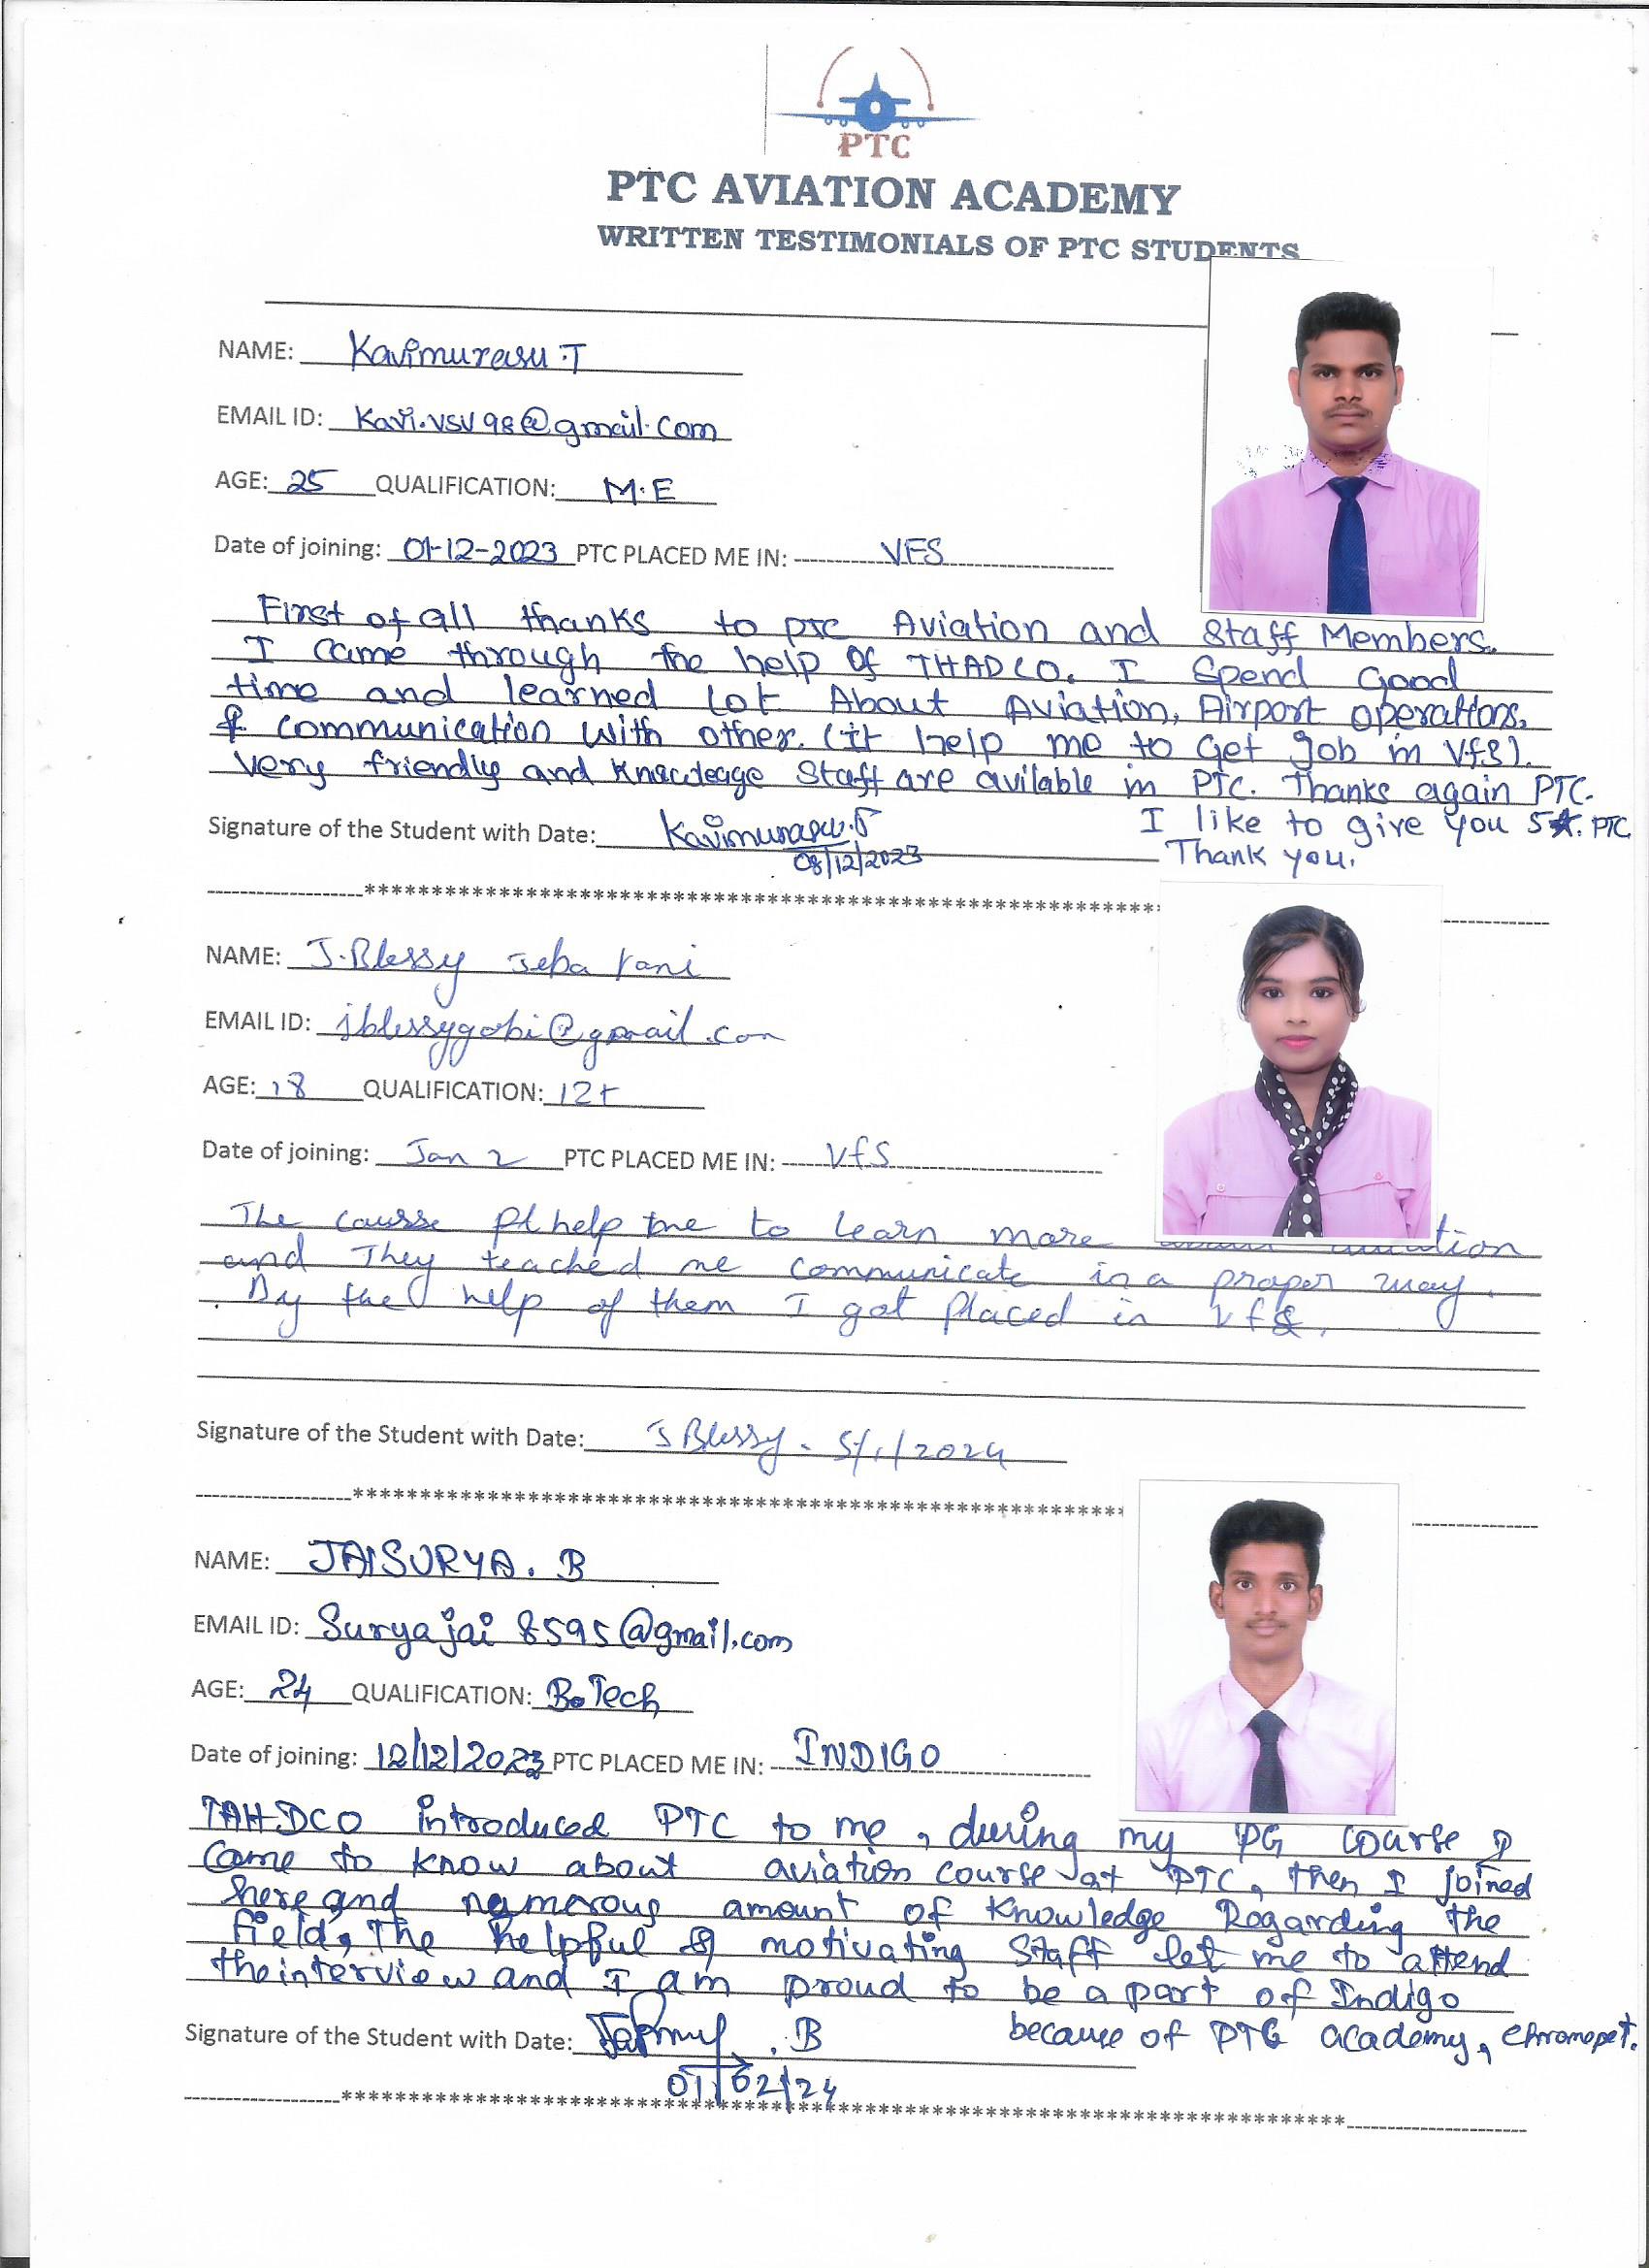 PTC
PTC AVIATION ACADEMY
WRITTEN TESTIMONIALS OF PTC STUDENTS
NAME: Kavimurasu .T
EMAIL ID: Kavi.vsv98@gmail.com
AGE: 25 QUALIFICATION: M.E
Date of joining: 01-12-2023 PTC PLACED ME IN: VFS
First of all thanks to ptc Aviation and Staff Members.
I came through the help of THADCO. I Spend Good
time and learned lot About Aviation, Airport operations.
& communication with other. (it help me to Get job in Vfs).
Very friendly and knowledge Staff are avilable in PTC. Thanks again PTC.
I like to give you 5★. PTC
Signature of the Student with Date: Kavimurasu.T
Thank you.
08/12/2023
******************************************************************
NAME: J.Blessy Jeba rani
EMAIL ID: jblessygobi@gmail.com
AGE: 18 QUALIFICATION: 12+
Date of joining: Jan 2 PTC PLACED ME IN: Vfs
The course help me to learn more tion
and They teached me communicate in a proper way.
By the help of them I got placed in Vfs.
Signature of the Student with Date: J Blessy. 5/1/2024
******************************************************************
NAME: JAISURYA. B
EMAIL ID: Suryajai8595@gmail.com
AGE: 24 QUALIFICATION: B.Tech
Date of joining: 12/12/2023 PTC PLACED ME IN: INDIGO
TAHDCO introduced PTC to me, during my PG course I
Came to know about aviation course at PTC, then I joined
here and numerous amount of Knowledge Regarding the
field, The helpful & motivating Staff let me to attend
the interview and I am proud to be a part of Indigo
because of PTC academy, chromepet.
Signature of the Student with Date: .B
01/02/24
******************************************************************